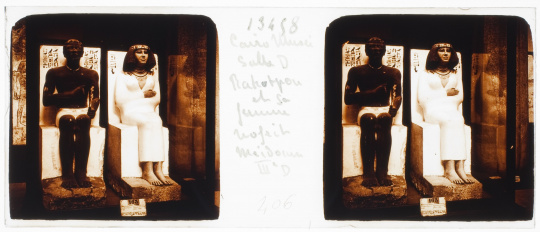 13458
Cairo Musée
Salle D
Rahotpou
et sa
femme
Nofrit
Meidoum
IIIe D
206